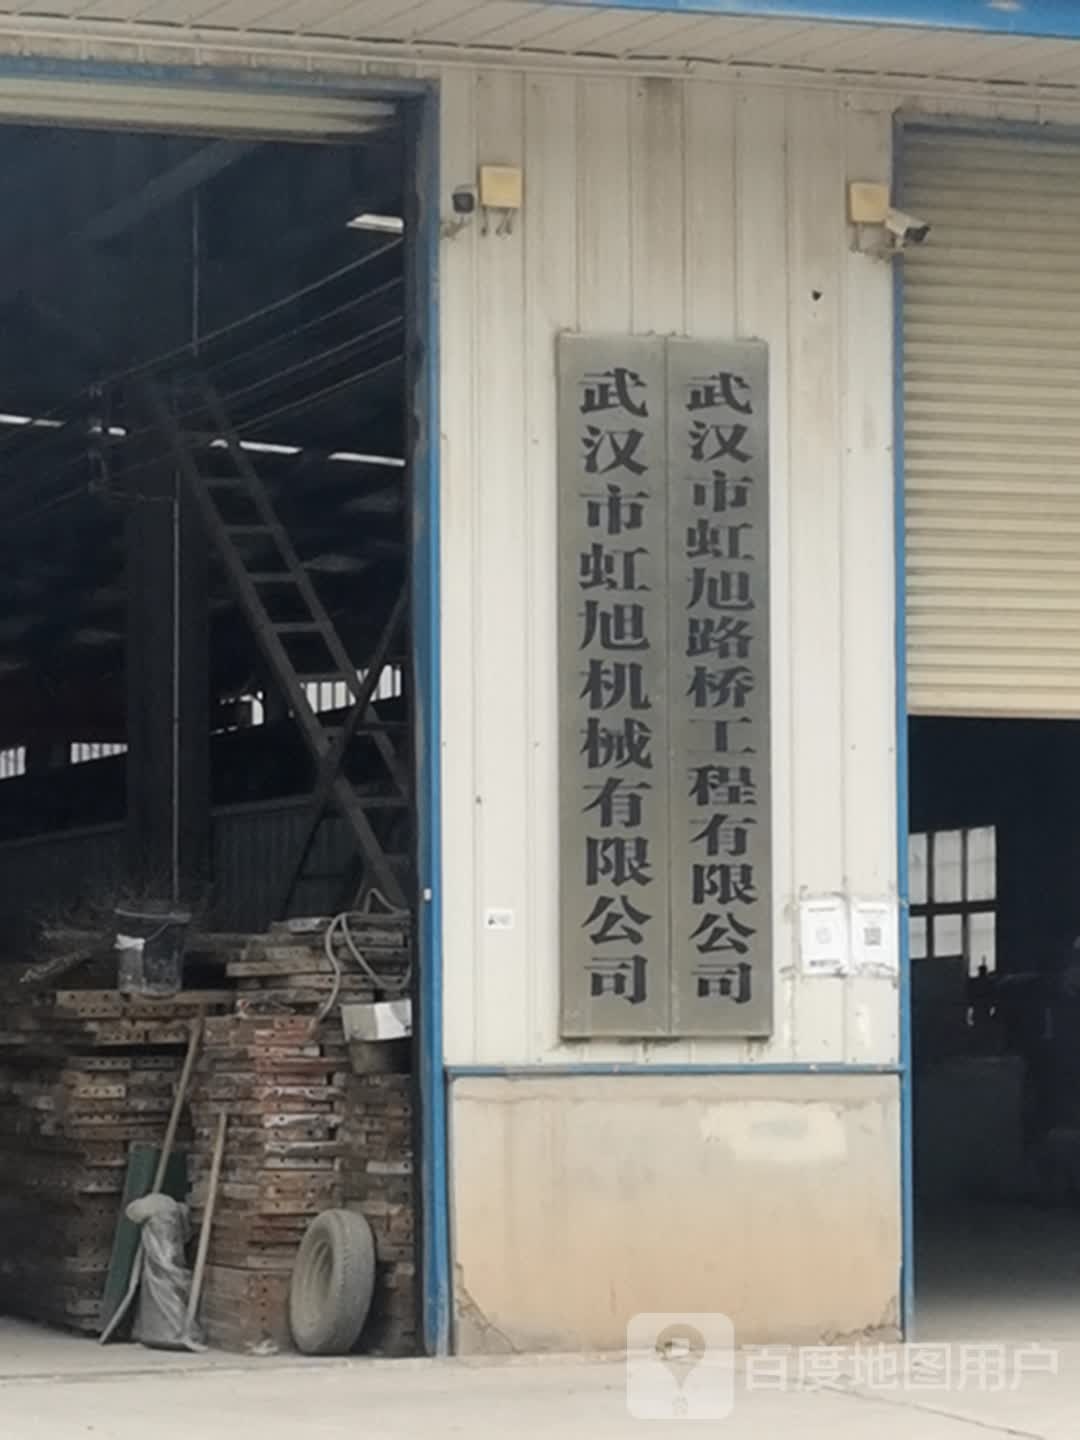 武汉市虹旭路桥工程有限公司
武汉市虹旭机械有限公司
百度地图用户